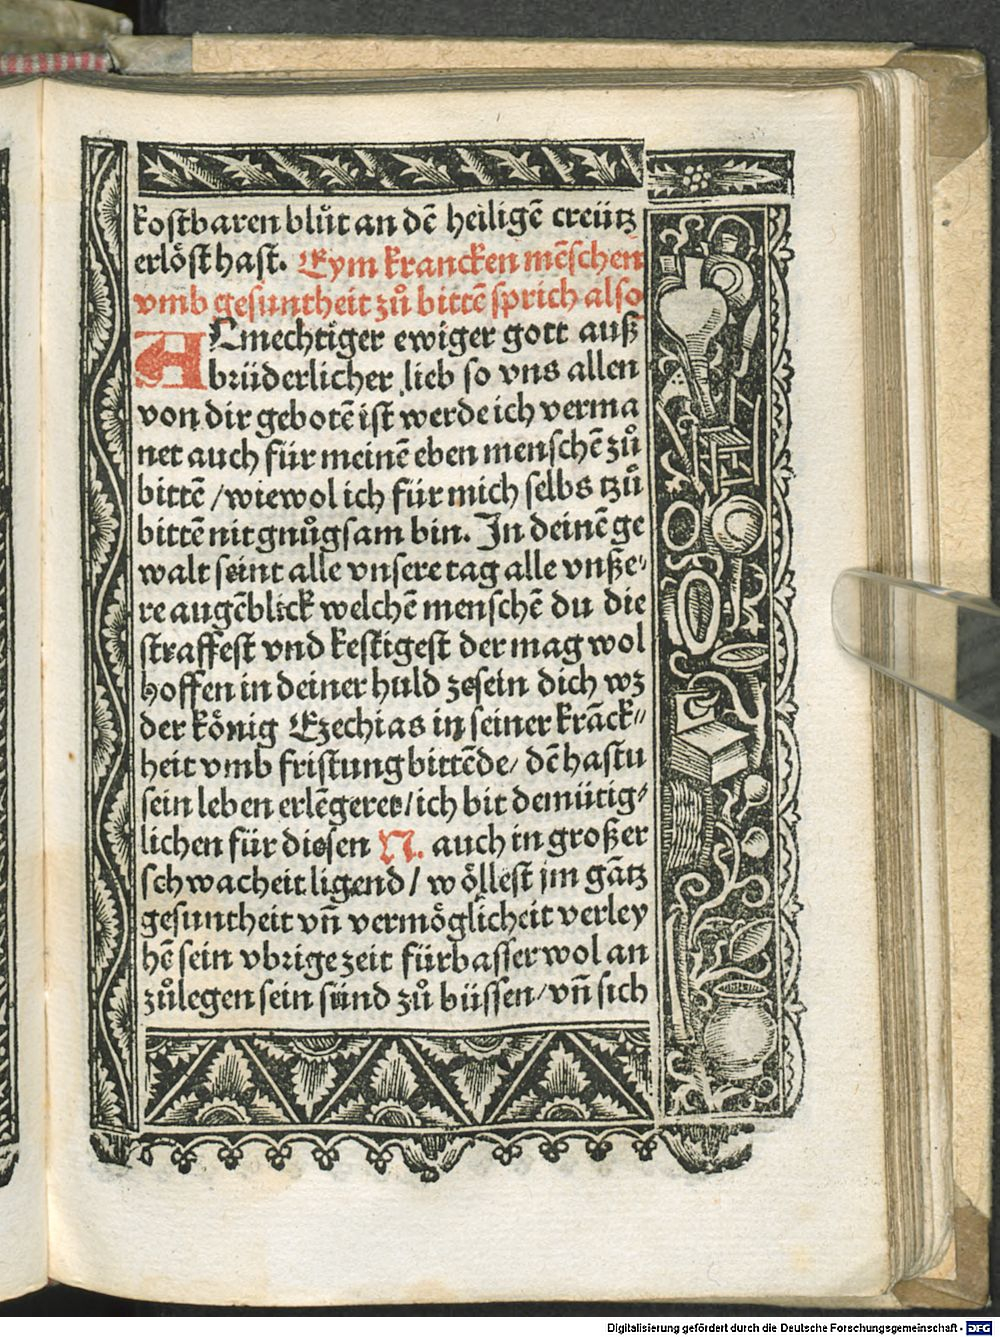 kostbaren blůt an dē heiligē creütz
erlöst hast. Eym krancken mēschen
vmb gesuntheit zů bittē sprich also
ALmechtiger ewiger gott auß
brüderlicher lieb so vns allen
von dir gebotē ist werde ich verma
net auch für meinē eben menschē zů
bittē / wiewol ich für mich selbs tzů
bittē nit gnůgsam bin. In deinē ge
walt seint alle vnsere tag alle vnße⸗
re augēblick welchē menschē du die
straffest vnd kestigest der mag wol
hoffen in deiner huld zesein dich wz
der kőnig Ezechias in seiner krāck⸗
heit vmb fristung bittēde / dē hastu
sein leben erlēgeret / ich bit demütig⸗
lichen für diesen N. auch in großer
schwacheit ligend / wöllest jm gātz
gesuntheit vn̄ vermöglicheit verley
hē sein vbrige zeit fürbasser wol an
zůlegen sein sünd zů büssen / vn̄ sich
Digitalisierung gefördert durch die Deutsche Forschungsgemeinschaft - DFG